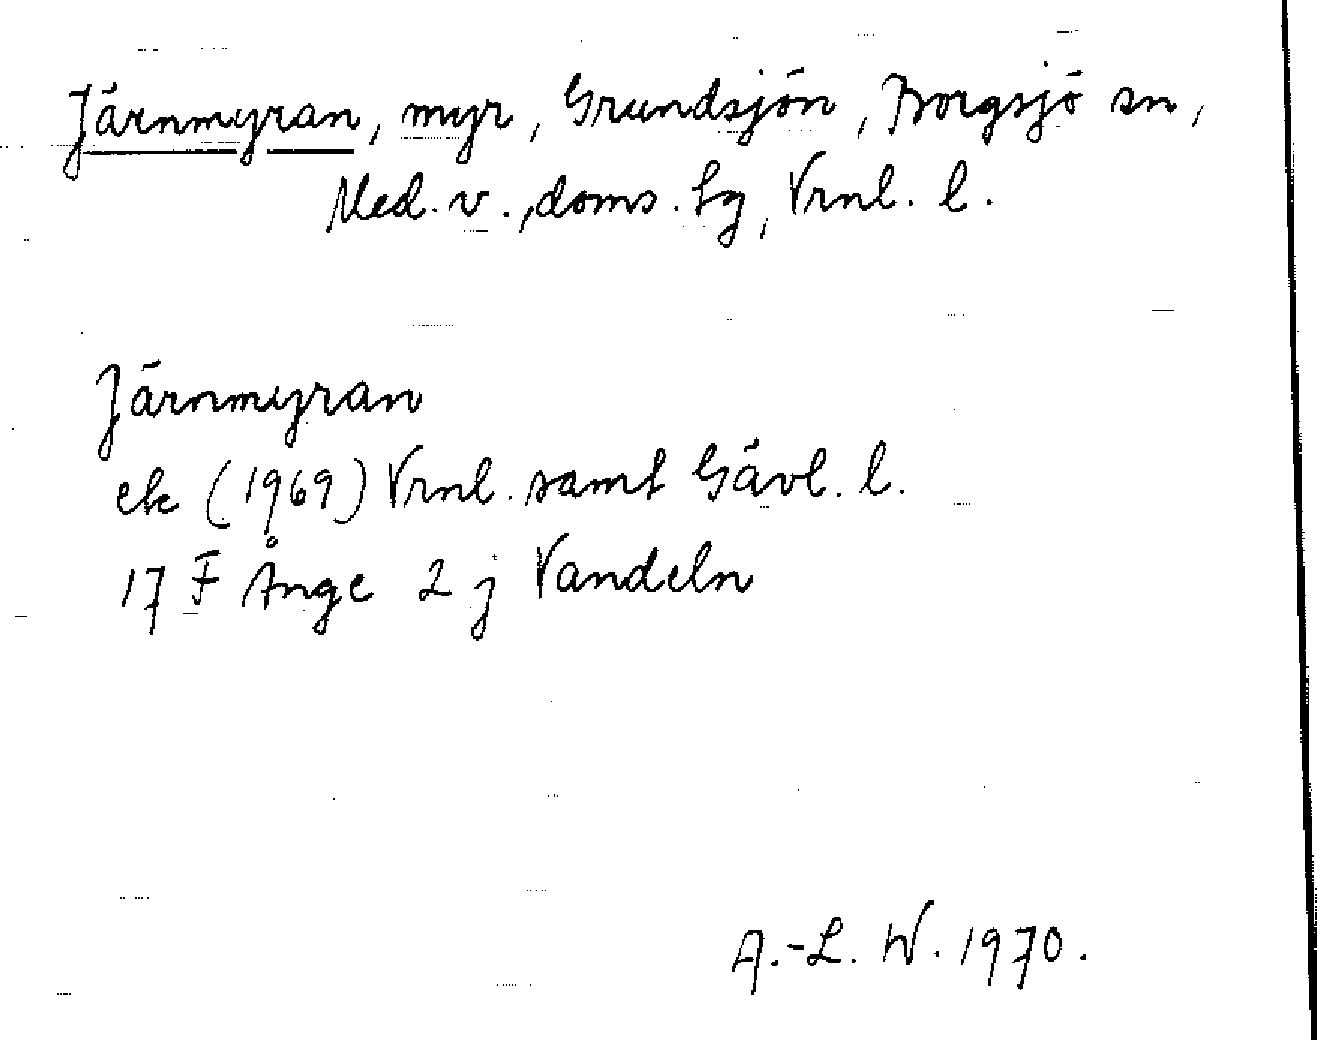 Järnmyran, myr, Grundsjön, Borgsjö sn,
Med. v., doms. lg, Vrnl. l.
Järnmyran
ek (1969) Vrnl. samt Gävl. l.
17 F Ånge 2 j Vandeln
A.-L. W. 1970.